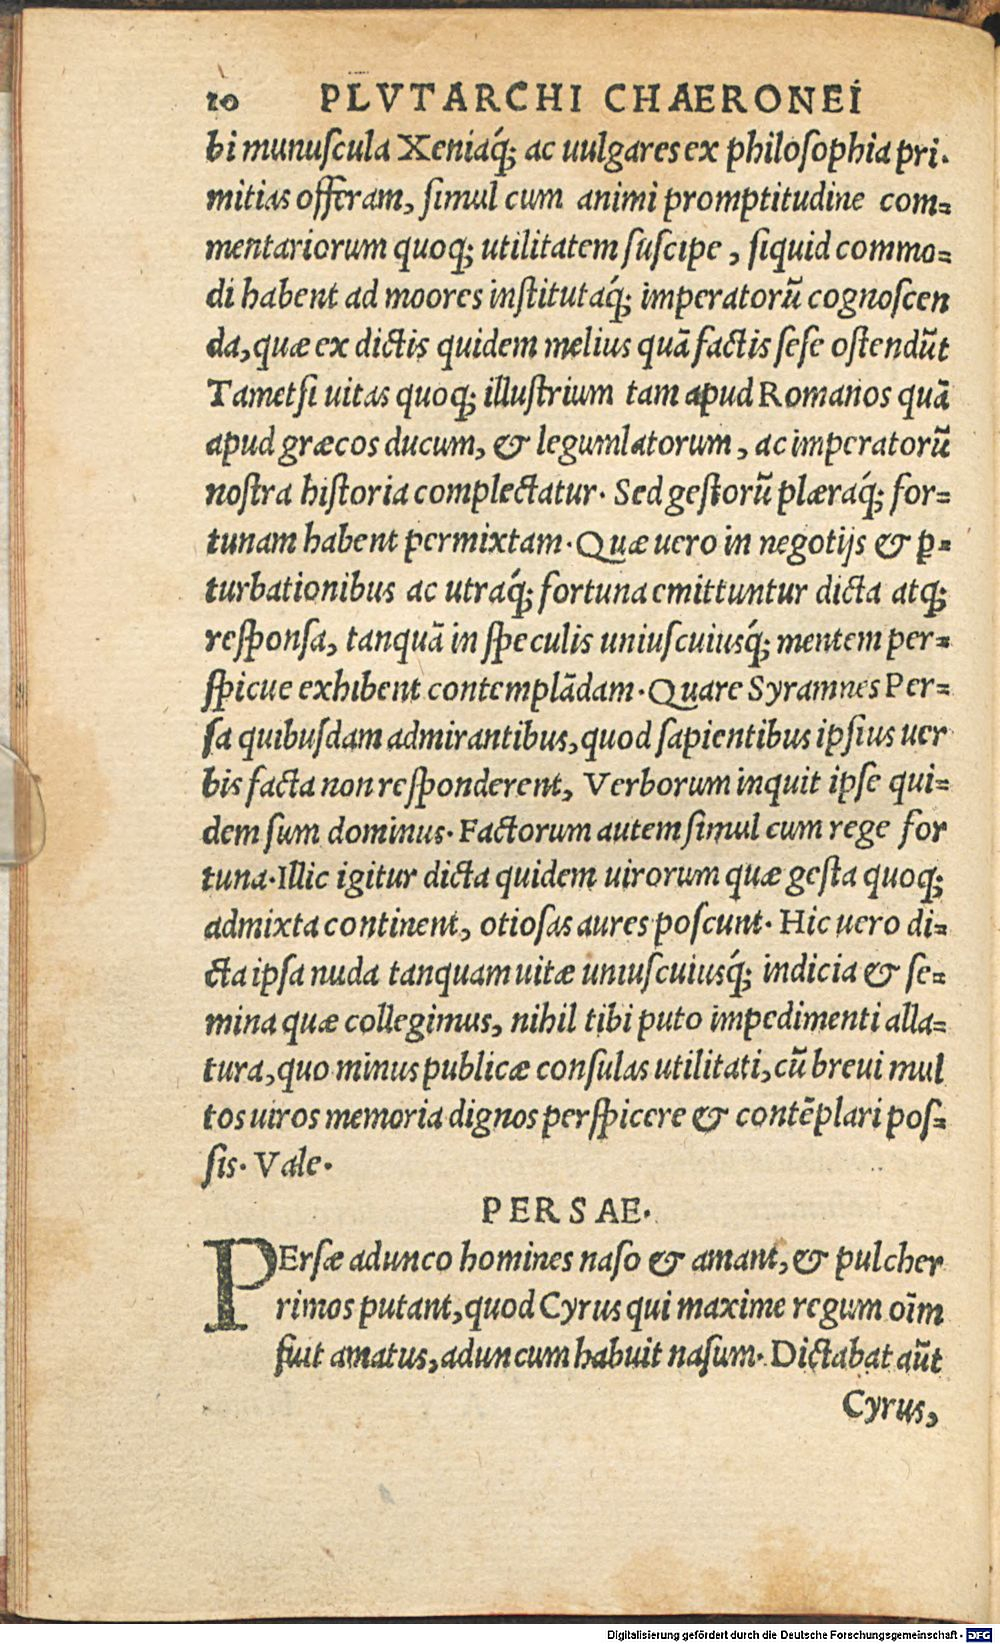 10 PLVTARCHI CHAERONEI
bi munuſcula Xeniaq́; ac uulgares ex philoſophia pri-
mitias offeram, ſimul cum animi promptitudine com-
mentariorum quoq; utilitatem ſuſcipe, ſiquid commo-
di habent ad moores inſtitutaq́; imperatorū cognoſcen
da, quæ ex dictis quidem melius quā factis ſeſe oſtendūt
Tametſi uitas quoq; illuſtrium tam apud Romanos quā
apud græcos ducum, & legumlatorum, ac imperatorū
noſtra hiſtoria complectatur. Sed geſtorū plæraq́; for-
tunam habent permixtam. Quæ uero in negotijs & p̱-
turbationibus ac utraq́; fortuna emittuntur dicta atq;
reſponſa, tanquā in ſpeculis uniuſcuiusq́; mentem per-
ſpicue exhibent contemplādam. Quare Syramnes Per-
ſa quibuſdam admirantibus, quod ſapientibus ipſius uer
bis facta non reſponderent, Verborum inquit ipſe qui-
dem ſum dominus. Factorum autem ſimul cum rege for
tuna. Illic igitur dicta quidem uirorum quæ geſta quoq;
admixta continent, otioſas aures poſcunt. Hic uero di-
cta ipſa nuda tanquam uitæ uniuſcuiusq́; indicia & ſe-
mina quæ collegimus, nihil tibi puto impedimenti alla-
tura, quo minus publicæ conſulas utilitati, cū breui mul
tos uiros memoria dignos perſpicere & contēplari poſ-
ſis. Vale.
PERSAE.
PErſæ adunco homines naſo & amant, & pulcher
rimos putant, quod Cyrus qui maxime regum oīm
fuit amatus, aduncum habuit naſum. Dictabat aūt
Cyrus,
Digitalisierung gefördert durch die Deutsche Forschungsgemeinschaft - DFG